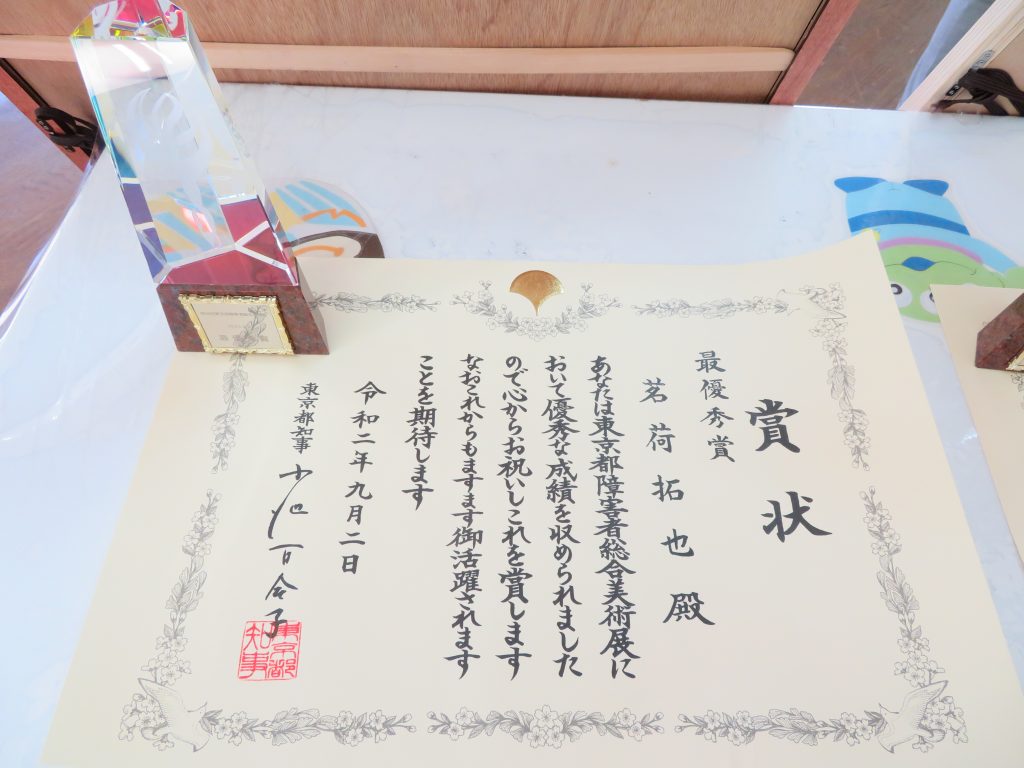 賞状
最優秀賞
茗荷拓也殿
あなたは東京都障害者総合美術展に
おいて優秀な成績を収められました
ので心からお祝いしこれを賞します
なおこれからもますます御活躍されます
ことを期待します
令和二年九月二日
東京都知事 小池百合子
東京都
知事